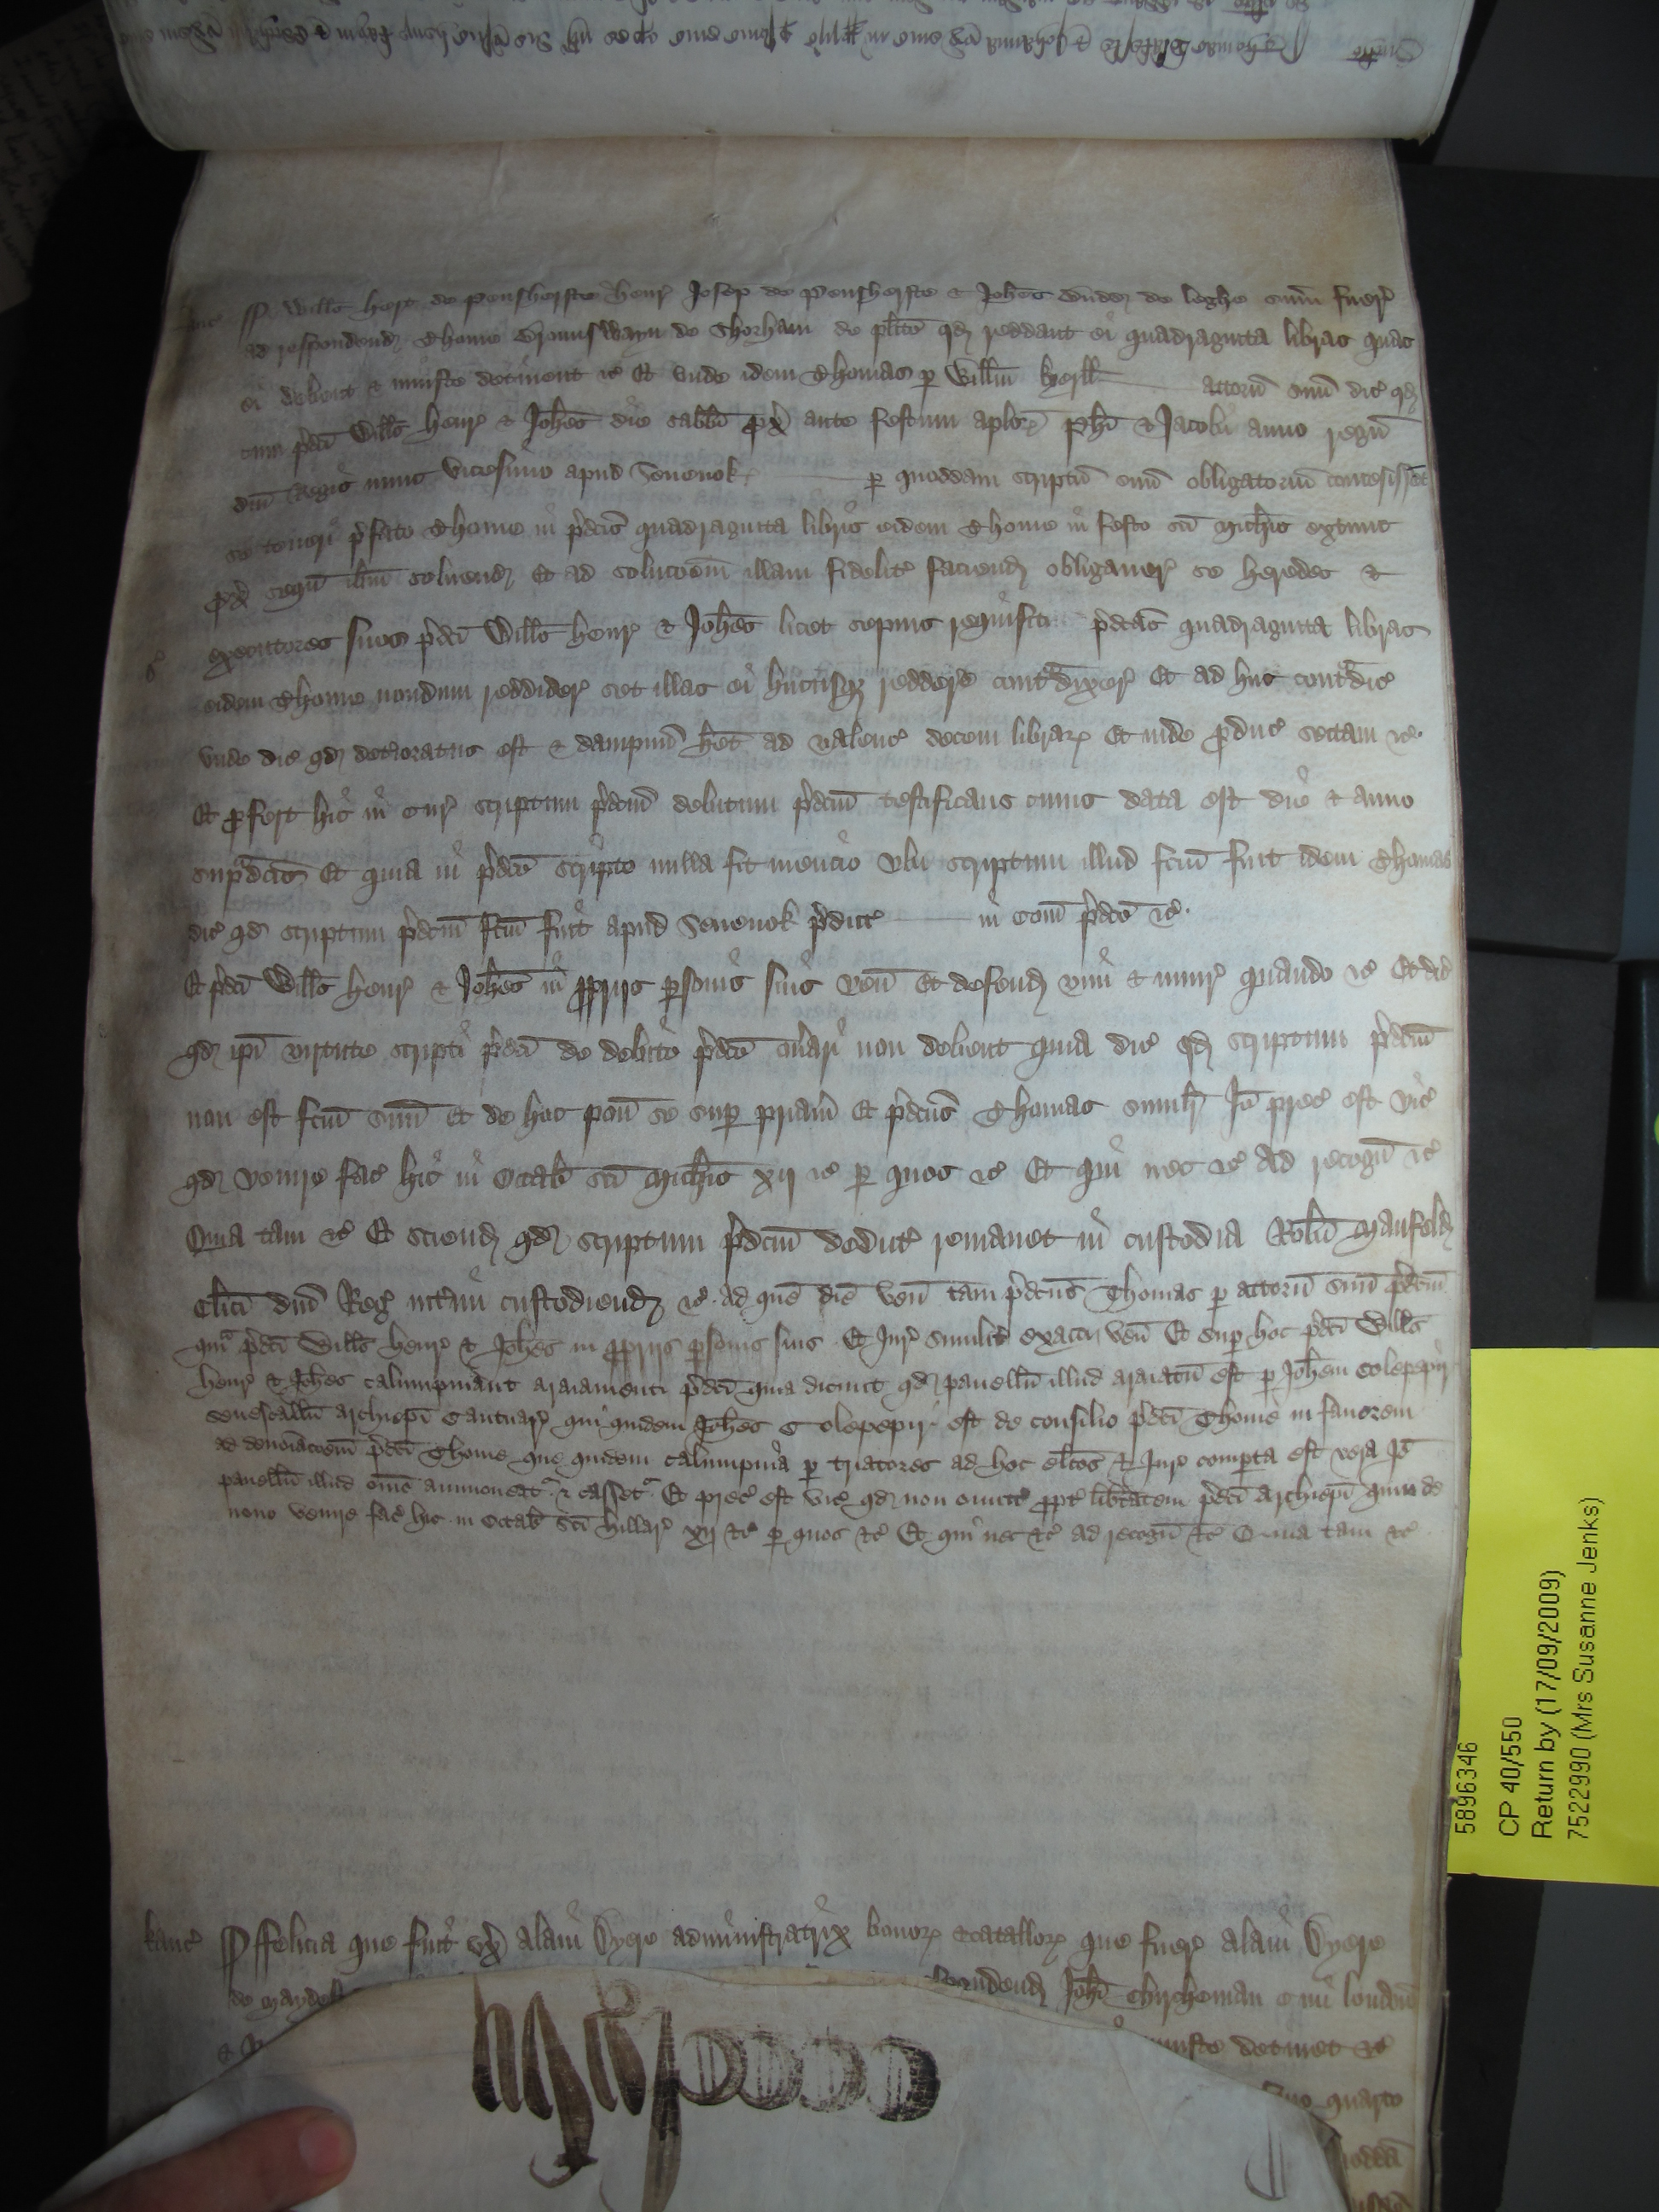 Kanc̄ ꝑ Wills̄ Hert de Pensherste Henr̄ Josep de Pensherste & Joh̄es de Leghe sum̄ fuer̄
ad respondend̄ Thome Bromswayn de Shorham de pl̄ito qd̄ reddant ei quadraginta libras quas
ei debent & iniuste detinent &c̄ Et unde idem Thomas ꝑ Will̄m Herll attorn̄ suū dic̄ qd̄
cum p̄dc̄i Wills̄ Henr̄ & Joh̄es die sabb̄i ꝓx̄ ante festum apl̄or̄ Ph̄i & Jacobi anno regn̄
dn̄i Regis nunc vicesimo apud Sevenok ꝑ quoddam scriptū suū obligatoriū concesissēt
se teneri p̄fato Thome in p̄dc̄is quadraginta libris eidem Thome in festo sc̄i Mich̄is extunc
ꝓx̄ seqū ib̄m solvend̄ Et ad soluc̄oem illam fidelit̄ faciend̄ obligaver̄ se heredes &
executores suos p̄dc̄i Wills̄ Henr̄ & Joh̄es licet sepius requisiti p̄dc̄as quadraginta libras
eidem Thome nondum reddider̄ set illas ei hucusq̄ reddere cont̄dixer̄ Et ad huc cont̄dic̄
unde dic̄ qd̄ det̄ioratus est & dampnū h̄et ad valenc̄ decem librar̄ Et inde ꝓduc̄ sectam &c̄
Et ꝓfert hic in cur̄ scriptum p̄dc̄m debitum p̄dc̄m testificans cuius data est die & anno
sup̄dc̄is Et quia in p̄dc̄o scripto nulla fit mencio ubi scriptum illud fc̄m fuit idem Thomas
dic̄ qd̄ scriptum p̄dc̄m fc̄m fuit apud Sevenok p̄dict̄ in com̄ p̄dc̄o &c̄
Et p̄dc̄i Wills̄ Henr̄ & Joh̄es in ꝓpriis ꝑsonis suis ven̄ Et defend̄ vim & iniur̄ quando &c̄ Et dic̄
qd̄ ip̄i virtute scripti p̄dc̄i de debito p̄dc̄o on̄ari non debent quia dic̄ qd̄ scriptum p̄dc̄m
non est fc̄m suū Et de hoc pon̄ se suꝑ pr̄iam Et p̄dc̄us Thomas simil̄r Io prec̄ est vic̄
qd̄ venire fac̄ hic in octab̄ sc̄i Mich̄is xij &c̄ ꝑ quos &c̄ Et qui nec &c̄ Ad recogn̄ &c̄
Quia tam &c̄ Et sciend̄ qd̄ scriptum p̄dc̄m dedict̄ remanet in custodia Rob̄ti Manfeld̄
cl̄ici dn̄i Reḡ int̄im custodiend̄ &c̄ ad quē diē ven̄ tam p̄dc̄us Thomas ꝑ attorn̄ suū p̄dc̄m
qm̄ p̄dc̄i Wills̄ Henr̄ & Joh̄es in ꝓpriis ꝑsonis suis Et Jur̄ similit̄ exacti ven̄ Et suꝑ hoc p̄dc̄i Wills̄
Henr̄ & Joh̄es calumpniant araiamenti p̄dc̄i quia dicunt qd̄ panellū illud araiatū est ꝑ Joh̄em Colepepir
senescallū archiep̄i Cantuar̄ qui quidem Joh̄es Colepepir est de consilio p̄dc̄i Thome in favorem
ad denoiāc̄oem p̄dc̄i Thome que quidem calumpnia ꝑ triatores ad hoc elc̄os & Jur̄ compta est vera Io
panellū illud om̄e ammoveat̄ & casset̄ Et prec̄ est vic̄ qd̄ non omitt̄ ꝓpt̄ lib̄tatem p̄dc̄i archiep̄i quin de
novo venire fac̄ hic in octab̄ sc̄i Hillar̄ xij &c̄ ꝑ quos &c̄ Et qui nec &c̄ ad recogn̄ &c̄ Quia tam &c̄
Kanc̄ ꝑ ffelicia que fuit ux̄ Alani Dyere administratrix bonor̄ & catallor̄ que fuer̄ Alani Dyere
de Mayde pondend̄ Joh̄i Chircheman Civi London̄
iniuste detinet &c̄
quarto
5896346
CP 40/550
Return by (17/09/2009)
7522990 (Mrs Susanne Jenks)